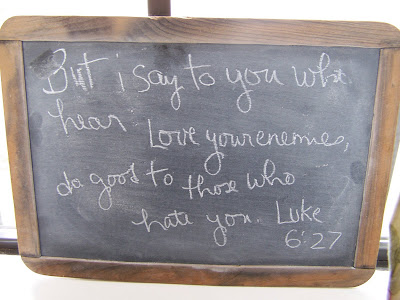 But i say to you who
hear Love your enemies,
do good to those who
hate you. Luke
6:27